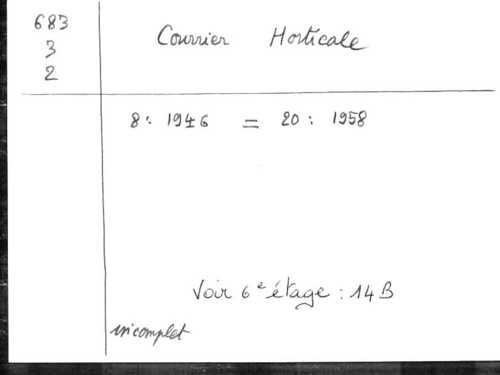 683
3
2
Courrier Horticale
8: 1946 = 20: 1958
Voir 6e étage : 14B
incomplet